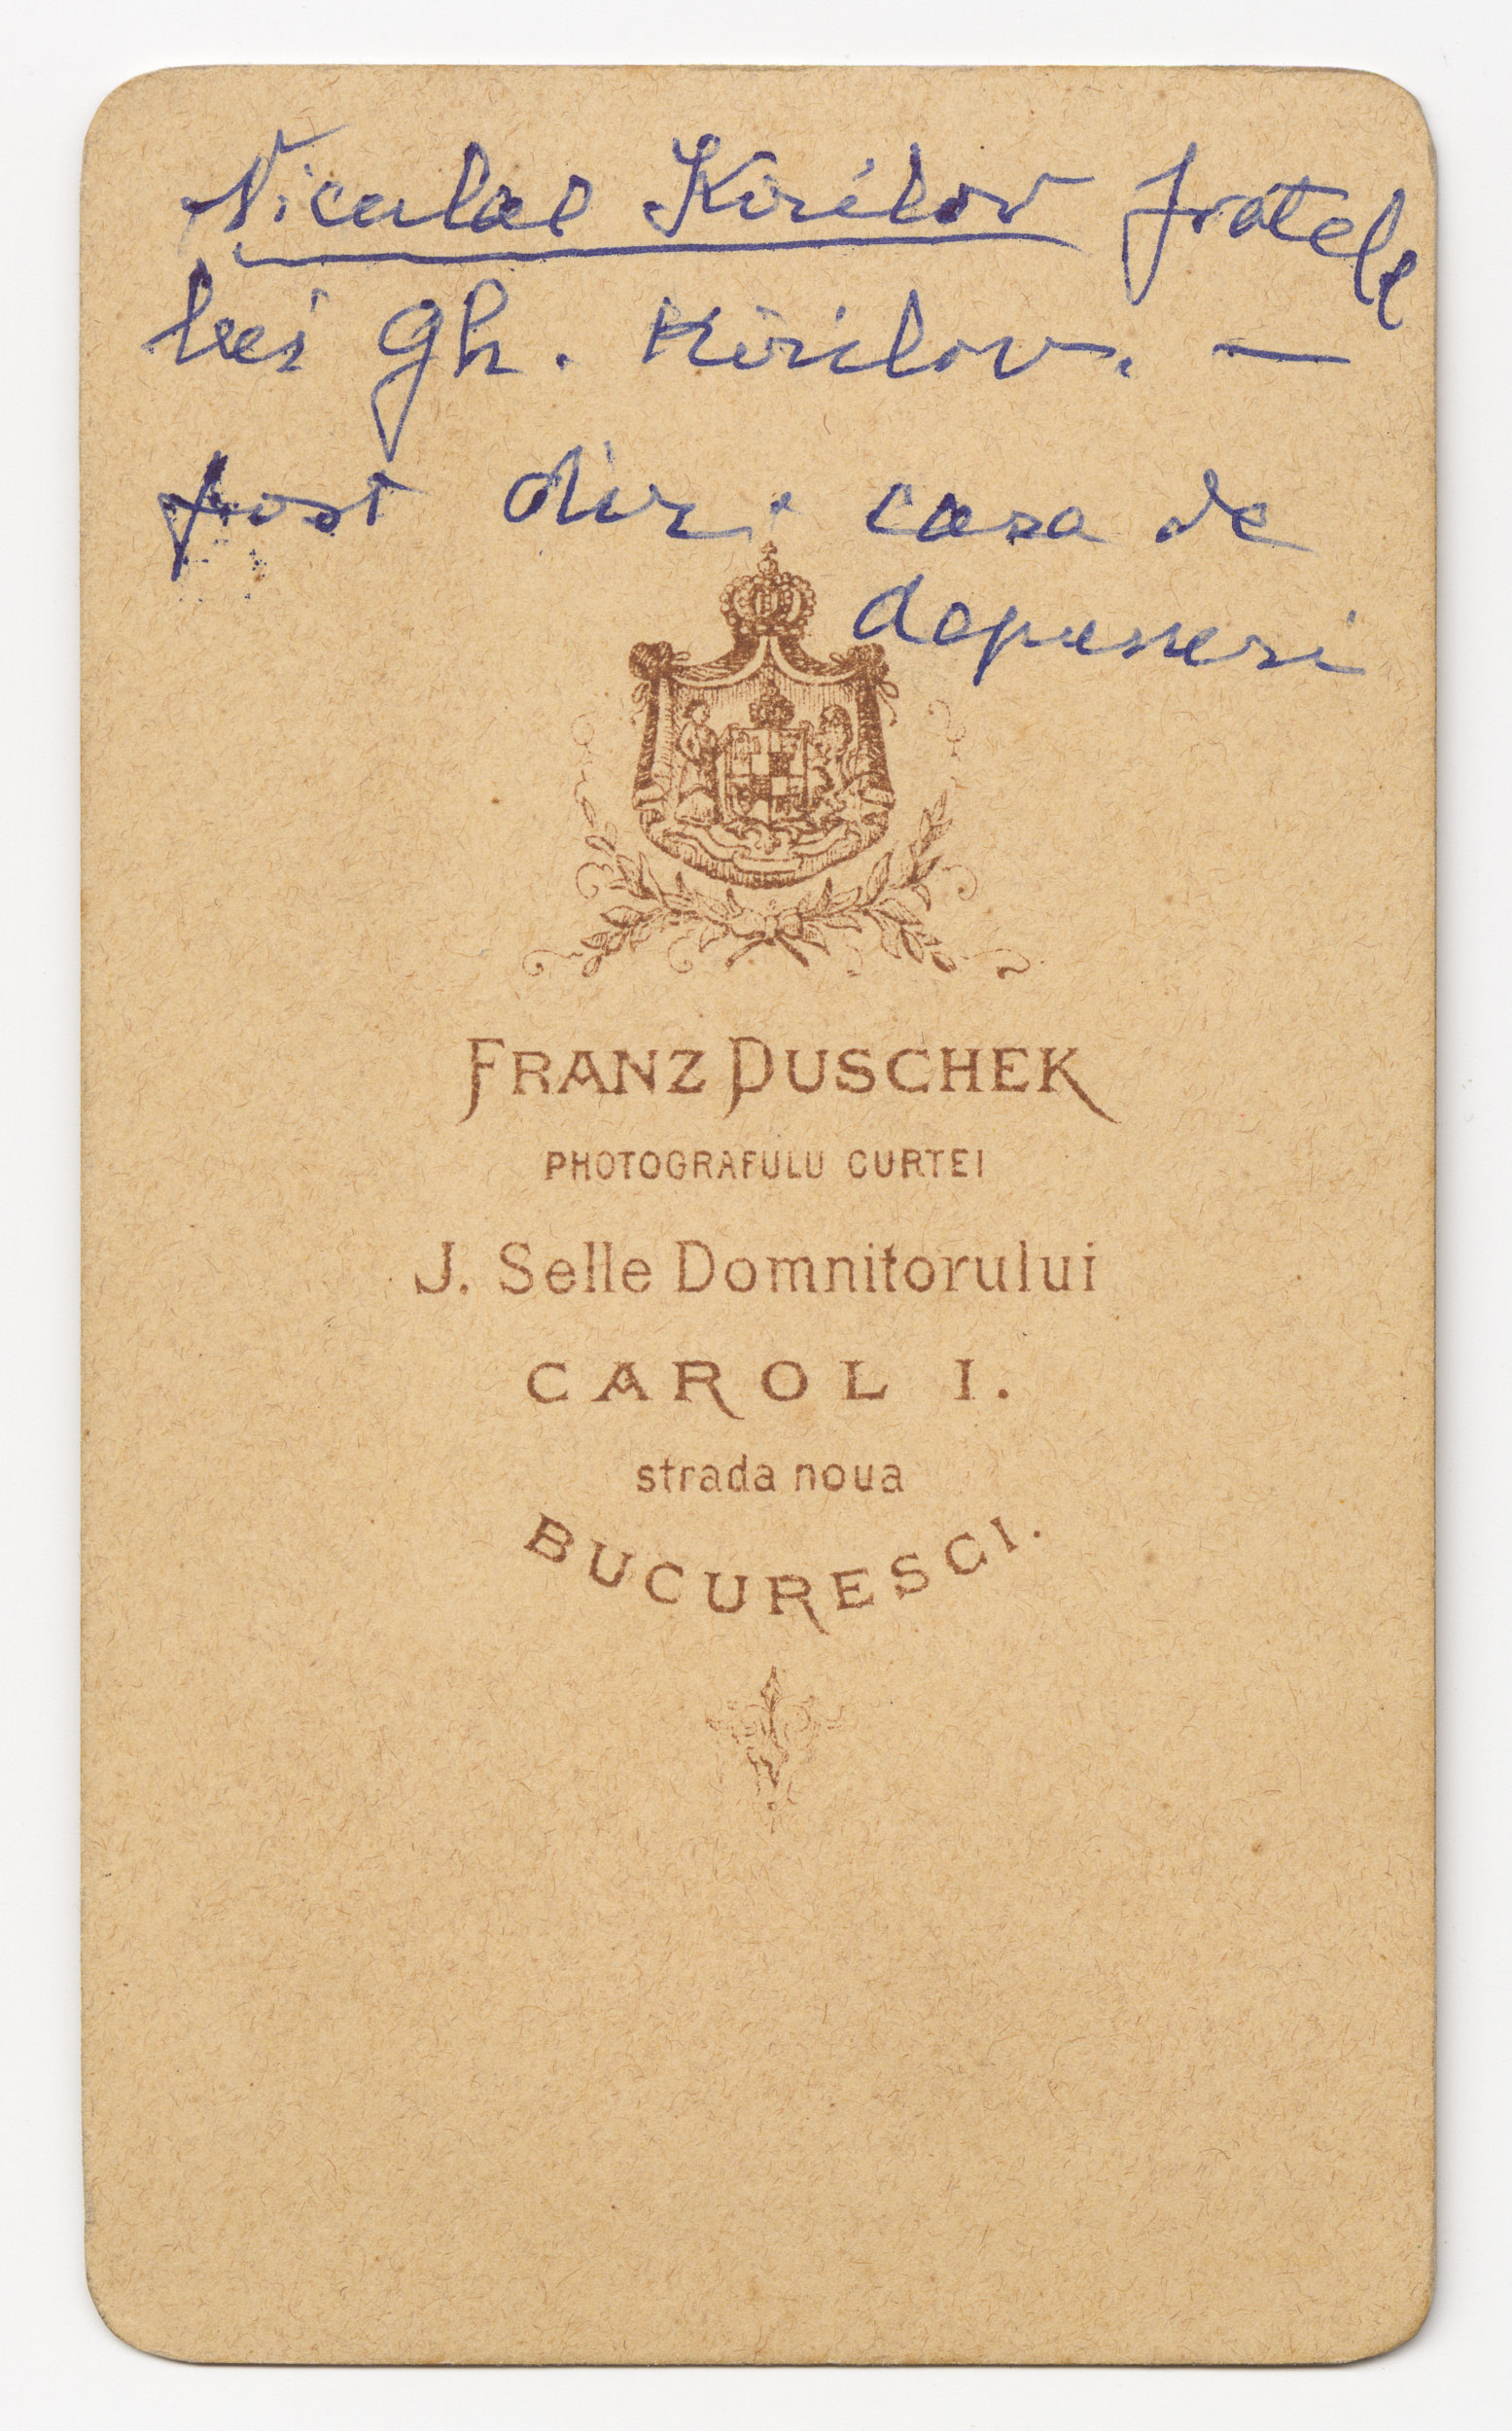 Niculae Kirilov fratele
lui Gh. Kirilov. —
fost dir. casa de
depuneri
FRANZ DUSCHEK
PHOTOGRAFULU CURTEI
J. Selle Domnitorului
CAROL I.
strada noua
BUCURESCI.